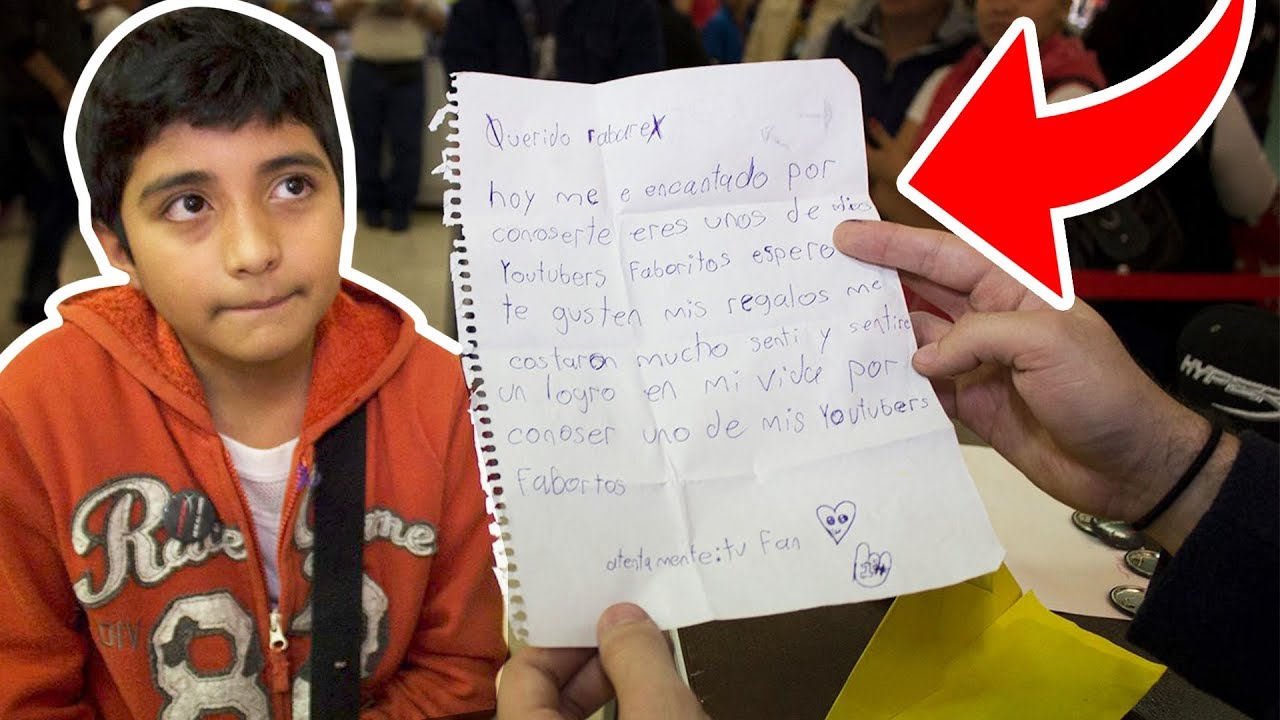 Querido rabareX
hoy me e encantado por
conoserte eres unos de mis
Youtubers Faboritos espero
te gusten mis regalos me
costaron mucho senti y sentire
un logro en mi vida por
conoser uno de mis Youtubers
Fabortos
atentamente: tu Fan
DIV
88
HYPE